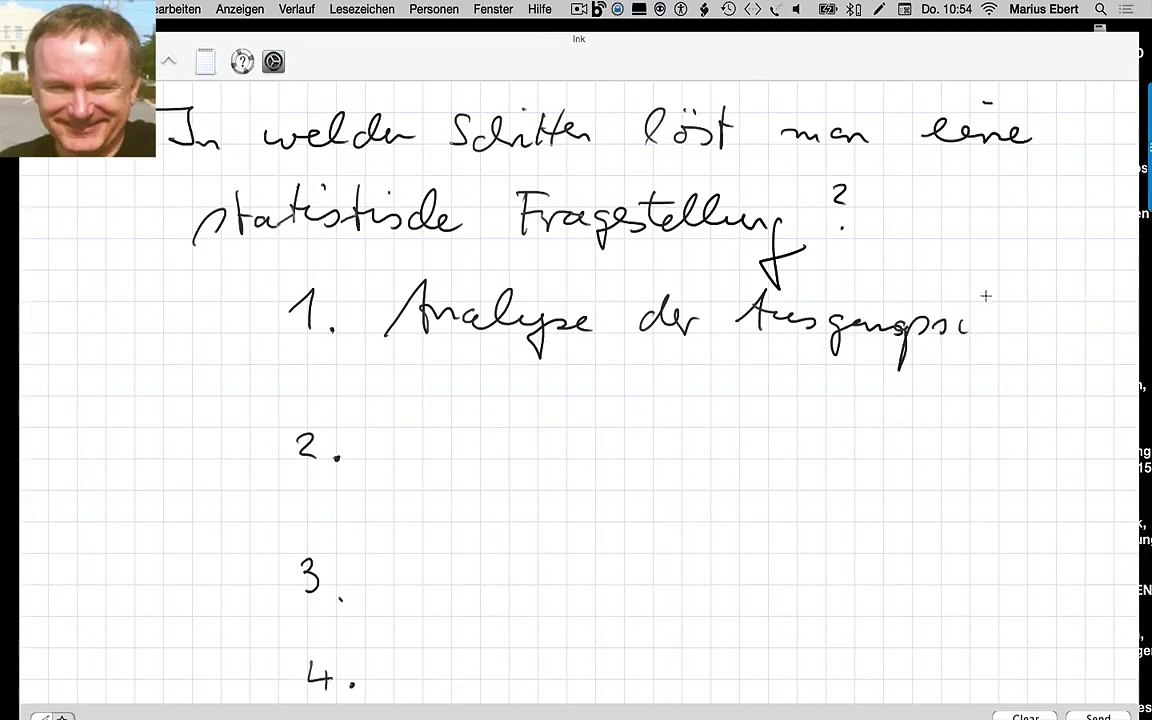 earbeiten Anzeigen Verlauf Lesezeichen Personen Fenster Hilfe Do. 10:54 Marius Ebert
Ink
In welchen Schritten löst man eine
statistische Fragestellung ?
1. Analyse der Ausgangssi
2.
3.
4.
Clear Send